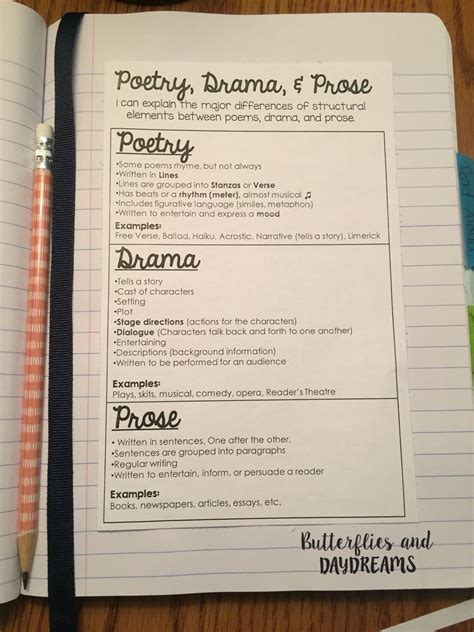 Poetry, Drama, & Prose
I can explain the major differences of structural
elements between poems, drama, and prose.
Poetry
•Some poems rhyme, but not always
•Written in Lines
•Lines are grouped into Stanzas or Verse
•Has beats or a rhythm (meter), almost musical ♫
•Includes figurative language (similes, metaphors)
•Written to entertain and express a mood
Examples:
Free Verse, Ballad, Haiku, Acrostic, Narrative (tells a story), Limerick
Drama
•Tells a story
•Cast of characters
•Setting
•Plot
•Stage directions (actions for the characters)
•Dialogue (Characters talk back and forth to one another)
•Entertaining
•Descriptions (background information)
•Written to be performed for an audience
Examples:
Plays, skits, musical, comedy, opera, Reader's Theatre
Prose
• Written in sentences. One after the other.
•Sentences are grouped into paragraphs
•Regular writing
•Written to entertain, inform, or persuade a reader
Examples:
Books, newspapers, articles, essays, etc.
Butterflies and
DAYDREAMS